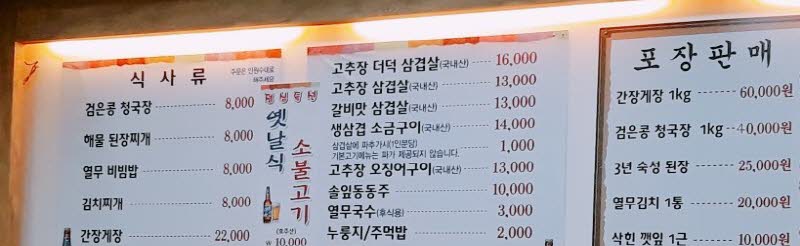 식 사 류
주문은 인원수대로
해주세요
검은콩 청국장 8,000
해물 된장찌개 8,000
열무 비빔밥 8,000
김치찌개 8,000
간장게장 22,000
옛날식
소불고기
(호주산)
₩ 10,000
고추장 더덕 삼겹살(국내산) 16,000
고추장 삼겹살(국내산) 13,000
갈비맛 삼겹살(국내산) 13,000
생삼겹 소금구이(국내산) 14,000
삼겹살에 파추가시(1인분당) 1,000
기본고기메뉴는 파가 제공되지 않습니다.
고추장 오징어구이(국내산) 13,000
솔잎동동주 10,000
열무국수(후식용) 3,000
누룽지/주먹밥 2,000
포장판매
간장게장 1kg 60,000원
검은콩 청국장 1kg 40,000원
3년 숙성 된장 25,000원
열무김치 1통 20,000원
삭힌 깻잎 1근 10,000원